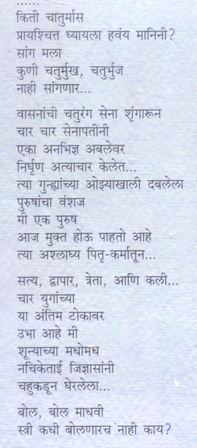 ......
किती चातुर्मास
प्रायश्चित्त घ्यायला हवंय मानिनी?
सांग मला
कुणी चतुर्मुख, चतुर्भुज
नाही सांगणार...
वासनांची चतुरंग सेना शृंगारून
चार चार सेनापतींनी
एका अनभिज्ञ अबलेवर
निर्घृण अत्याचार केलेत...
त्या गुन्ह्यांच्या ओझ्याखाली दबलेला
पुरुषांचा वंशज
मी एक पुरुष
आज मुक्त होऊ पाहतो आहे
त्या अश्लाघ्य पितृ-कर्मातून...
सत्य, द्वापार, त्रेता, आणि कली...
चार युगांच्या
या अंतिम टोकावर
उभा आहे मी
शून्याच्या मधोमध
नचिकेताई जिज्ञासांनी
चहुकडून घेरलेला...
बोल, बोल माधवी
स्त्री कधी बोलणारच नाही काय?